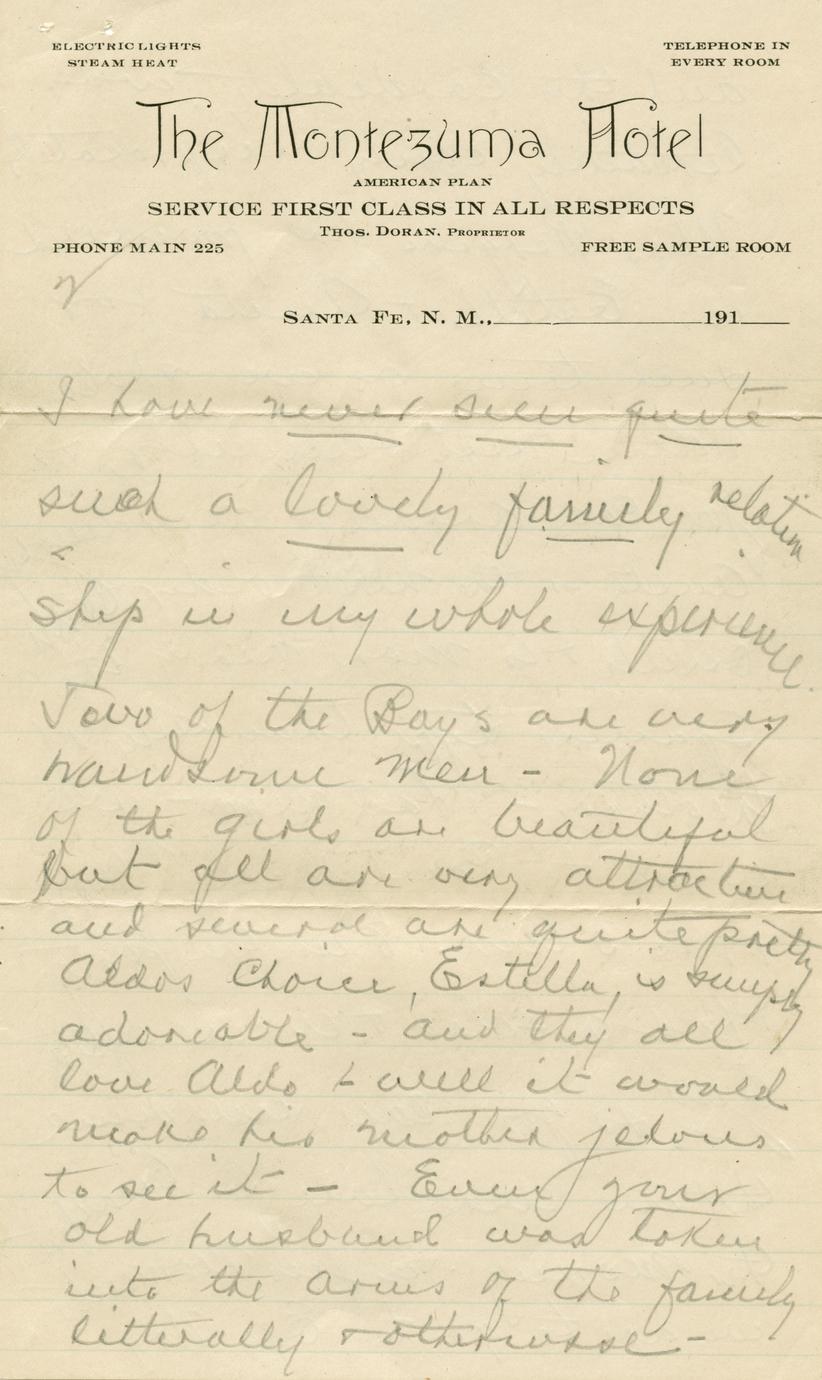 ELECTRIC LIGHTS
STEAM HEAT
TELEPHONE IN
EVERY ROOM
The Montezuma Hotel
AMERICAN PLAN
SERVICE FIRST CLASS IN ALL RESPECTS
THOS. DORAN. PROPRIETOR
PHONE MAIN 225
FREE SAMPLE ROOM
SANTA FE, N. M., 191
I have never seen quite
such a lovely family relation
ship in my whole experience.
Two of the Boys are very
handsome men - None
of the girls are beautiful
but all are very attractive
and several are quite pretty
Aldos Choice, Estella, is simply
adoreable - and they all
love Aldo - well it would
make his mother jelous
to see it - Even your
old husband was taken
into the arms of the family
litterally & otherwise -